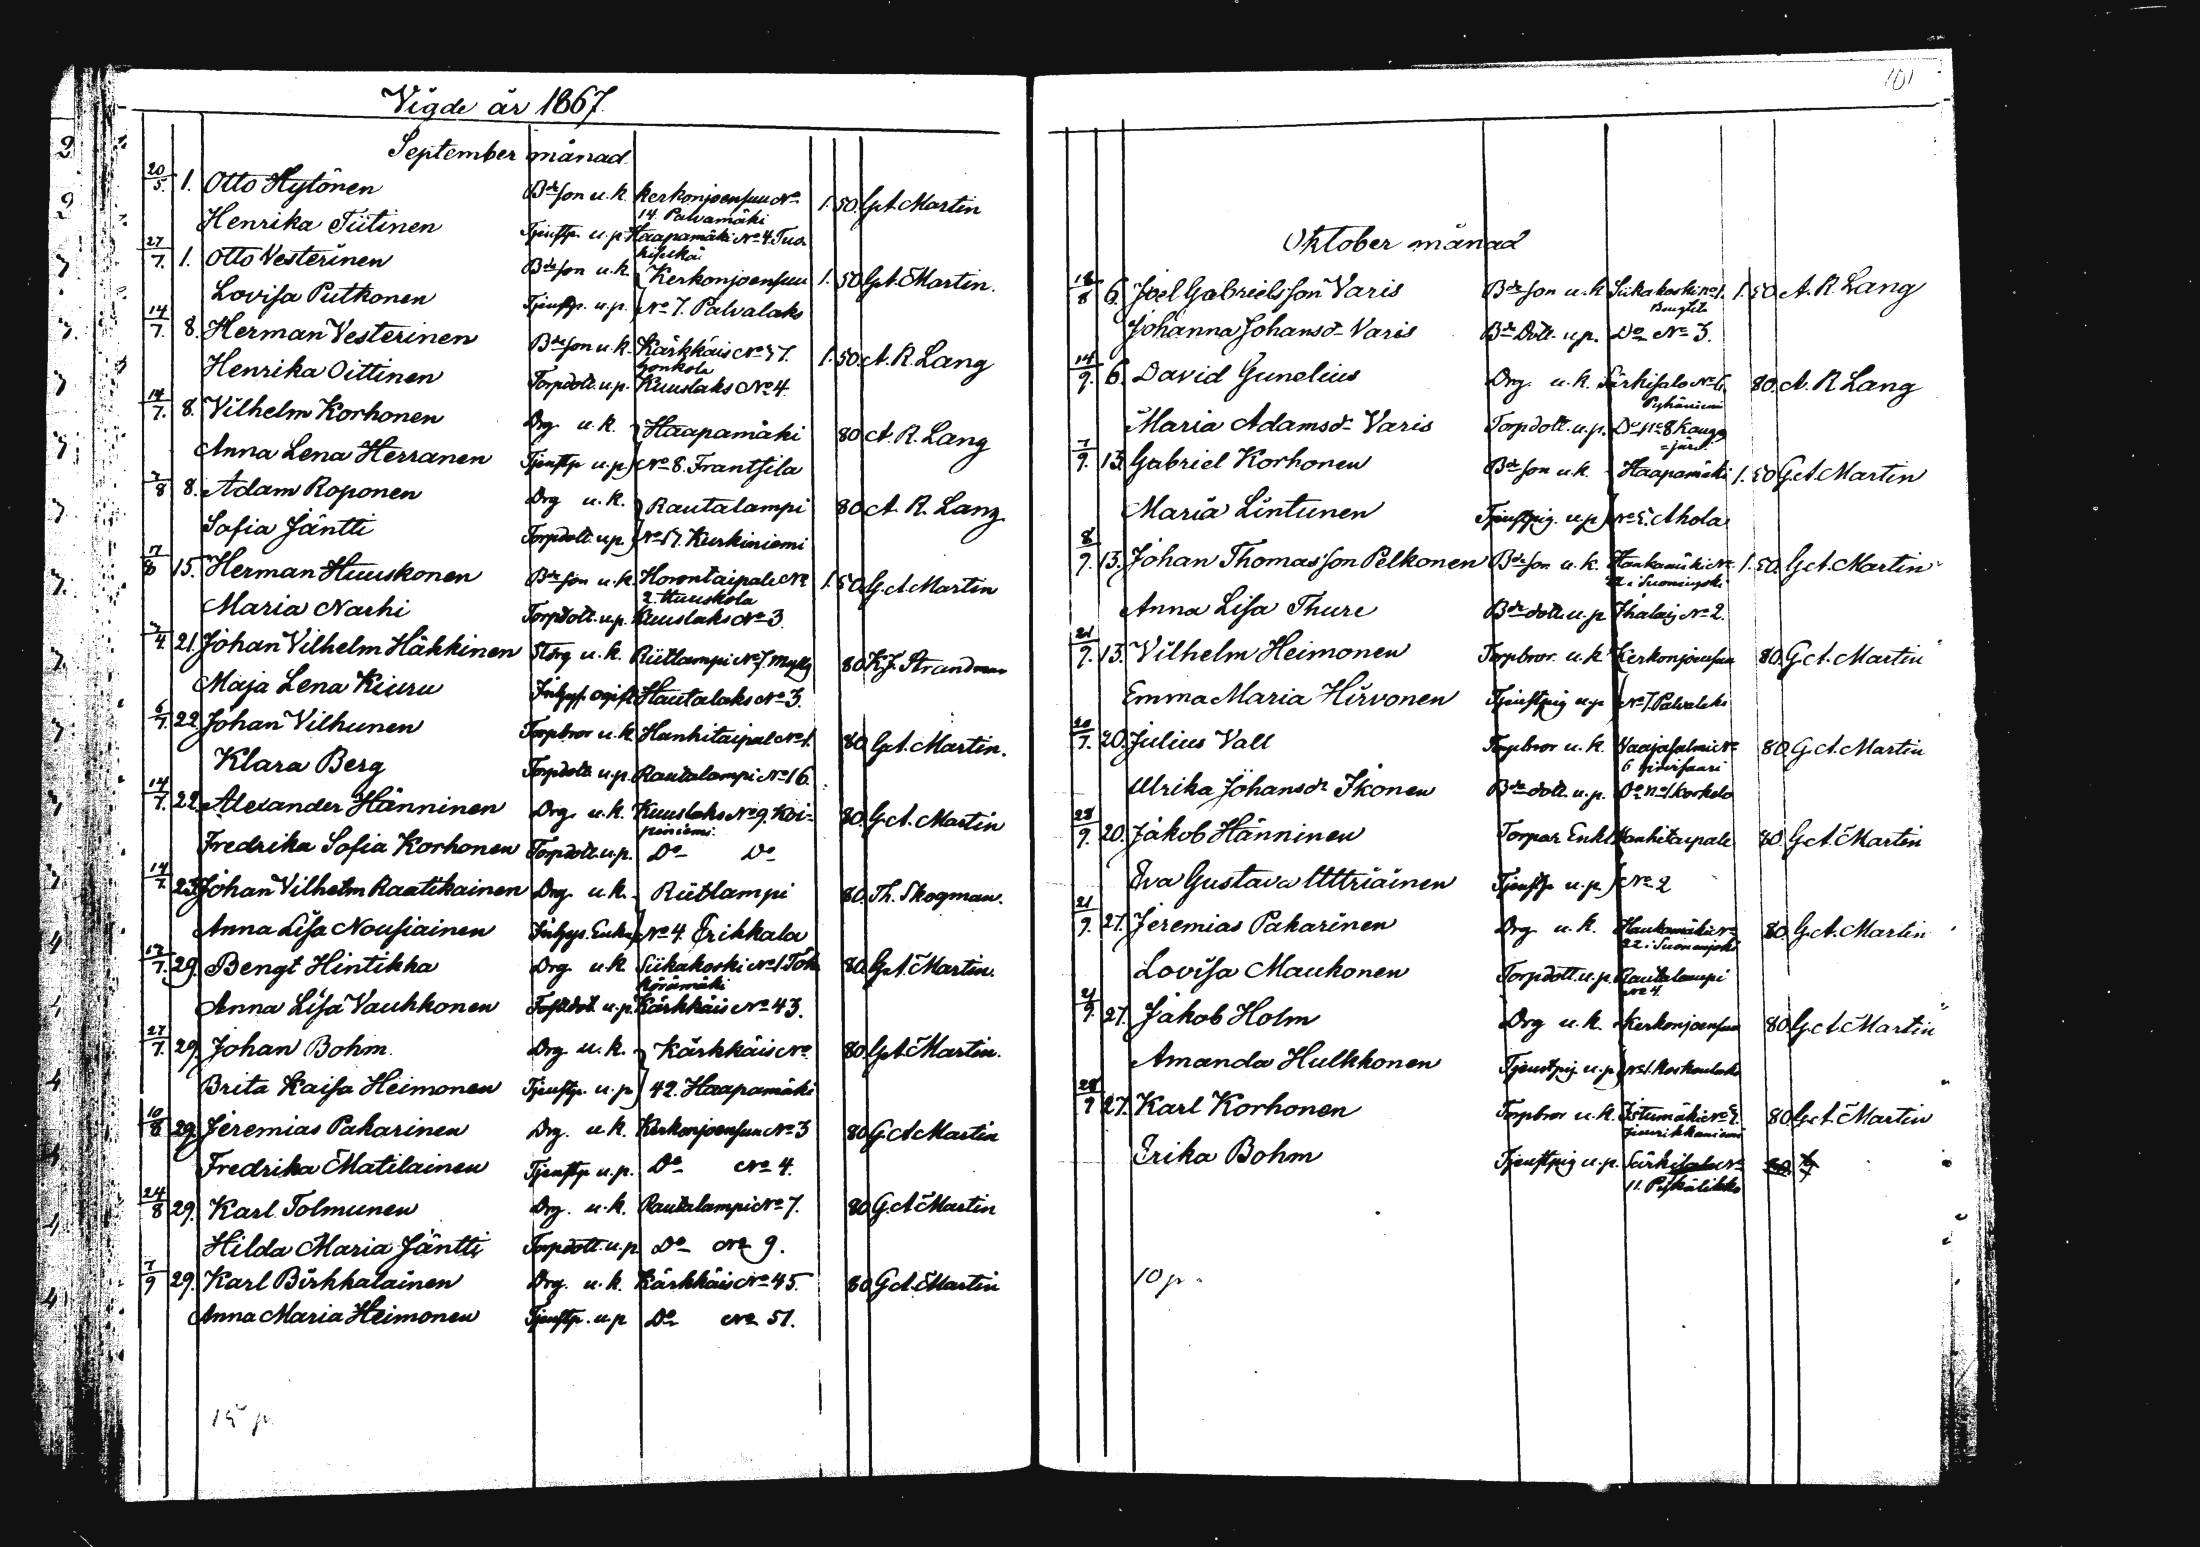 Vigde år 1867.
September månad
20/5 1. Otto Hytönen Bde son u.k. Kerkonjoensuu No 14. Palvamäki 1. 50. G.A. Martin
Henrika Tiitinen Tjenstp. u.p. Haapamäki No 4.
27/7. 1. Otto Vesterinen Bde son u.k. Kerkonjoensuu 1. 50 G.A. Martin.
Lovisa Putkonen Tjenstp. u.p. No 7. Palvalaks
14/7. 8. Herman Vesterinen Bde son u.k. Kärkkäis No 37. Honkola 1. 50. A. R. Lang
Henrika Oittinen Torpdott. u.p. Kuuslaks No 4.
14/7. 8. Vilhelm Korhonen Drg u.k. Haapamäki 80 A. R. Lang
Anna Lena Herranen Tjenstp u.p. No 8. Frantsila
7/8 8. Adam Roponen Drg u.k. Rautalampi 80 A. R. Lang
Sofia Jäntti Torpdott. u.p. No 17. Kurkiniemi
17/8 15. Herman Huuskonen Bde son u.k. Horontaipale No 2. Huuskola 1. 50. G.A. Martin
Maria Narhi Torpdott. u.p. Kuuslaks No 3.
7/4 21. Johan Vilhelm Häkkinen u.k. Riitlampi No 7. 80 K.J. Strandman
Maja Lena Kiuru Inhys. ogift Hautalaks No 3.
6/7. 22. Johan Vilhunen Torpbror u.k. Hanhitaipal No 1. 80 G.A. Martin.
Klara Berg Torpdott. u.p. Rautalampi No 16.
14/7. 22. Alexander Hänninen Drg. u.k. Kuuslaks No 9. Koi=piniemi. 80. G.A. Martin
Fredrika Sofia Korhonen Torpdott. u.p. Do Do
14/7. 23. Johan Vilhelm Raatikainen Drg. u.k. Riitlampi 80. Th. Skogman.
Anna Lisa Nousiainen Inhys. Enka No 4. Erikkala
17/7. 29. Bengt Hintikka Drg. u.k. Siikakoski No 1. 80. G.A. Martin.
Anna Lisa Vauhkonen u.p. Kärkkäis No 43.
27/7. 29. Johan Bohm. Drg. u.k. Kärkkäis No 80. G.A. Martin.
Brita Kaisa Heimonen Tjenstp. u.p. 42. Haapamäki
10/8 29. Jeremias Pakarinen Drg. u.k. Kerkonjoensuu No 3 80 G.A. Martin
Fredrika Matilainen Tjenstp u.p. Do No 4.
24/8 29. Karl Tolmunen Drg. u.k. Rautalampi No 7. 80 G.A. Martin
Hilda Maria Jäntti Torpdott. u.p. Do No 9.
7/9 29. Karl Birkkalainen Drg. u.k. Kärkkäis No 45. 80 G.A. Martin
Anna Maria Heimonen Tjenstp. u.p Do No 51.
15 p.
101
Oktober månad
18/8 6. Joel Gabrielsson Varis Bde son u.k. Siikakoski No 1. 1. 50. A. R. Lang
Johanna Johansdr Varis Bde Dott. u.p. Do No 3.
14/9. 6. David Gunelius Drg. u.k. Särkisalo No 6. Pyhäniemi 80. A. R Lang
Maria Adamsdr Varis Torpdott. u.p. Do No 8
7/9. 13. Gabriel Korhonen Bde son u.k. Haapamäki 1. 50 G.A. Martin
Maria Lintunen Tjenstpig. u.p. No 5. Ahola
8/9. 13. Johan Thomasson Pelkonen Bde son u.k. Hankamäki No 22 i Suonenjoki 1. 50. G.A. Martin
Anna Lisa Thure Bde dott. u.p Ihalais No 2.
21/9. 13. Vilhelm Heimonen Torpbror. u.k. Kerkonjoensuu 80. G.A. Martin
Emma Maria Hirvonen Tjenstpig u.p No 7. Palvalaks
20/7. 20. Julius Vall Torpbror u.k. Vaajasalmi No 6 80. G.A. Martin
Ulrika Johansdr Ikonen Bde dott. u.p. Do No 1 Korkela
28/9. 20. Jakob Hänninen Torpar Enkl. Hanhitaipale 80. G.A. Martin
Eva Gustava Uttriainen Tjenstp u.p. No 2
21/9. 27. Jeremias Pakarinen Drg u.k. Hankamäki No 22 i Suonenjoki 80. G.A. Martin
Lovisa Maukonen Torpdott. u.p. Rautalampi No 4.
21/9. 27. Jakob Holm Drg u.k. Kerkonjoensuu 80. G.A. Martin
Amanda Hulkkonen Tjenstpig u.p. No 1. Koskenlaks
28/9 27. Karl Korhonen Torpbror u.k. Istumäki No 80. G.A. Martin
Erika Bohm Tjenstpig u.p. Särkisalo No 11.
10 p.